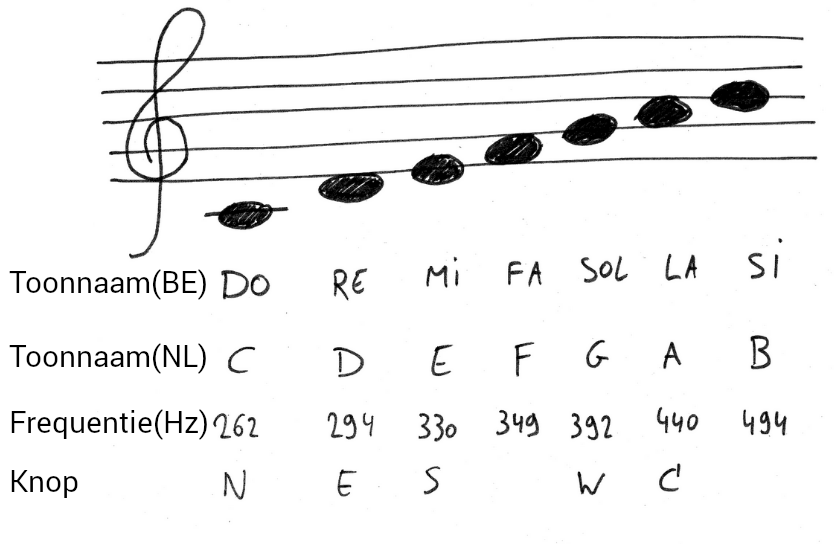 Toonnaam(BE) DO RE Mi FA SOL LA Si
Toonnaam(NL) C D E F G A B
Frequentie(Hz) 262 294 330 349 392 440 494
Knop N E S W C